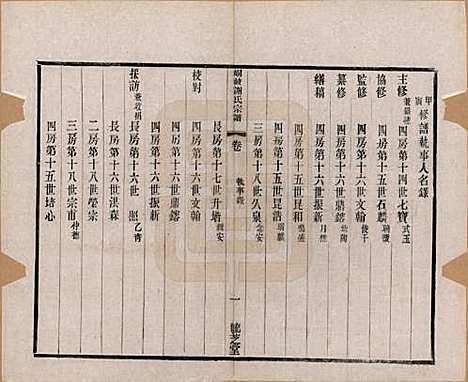 甲寅修譜執事人名錄
主修 兼鑑定 四房第十四世七寶 式玉
協修 四房第十五世石麟
監修 四房第十六世文翰
纂修 四房第十六世鼎鎔
繕稿 四房第十六世振新
四房第十五世昆和
四房第十五世昆浩
三房第十八世久泉 念安
峒岐謝氏宗譜 卷 執事錄 一
長房第十七世升堦
校對 四房第十六世文翰
四房第十六世鼎鎔
四房第十六世振新
採訪 長房第十六世 照乙青
長房第十八世洪森
二房第十八世榮宗
三房第十八世宗甫
四房第十五世培心